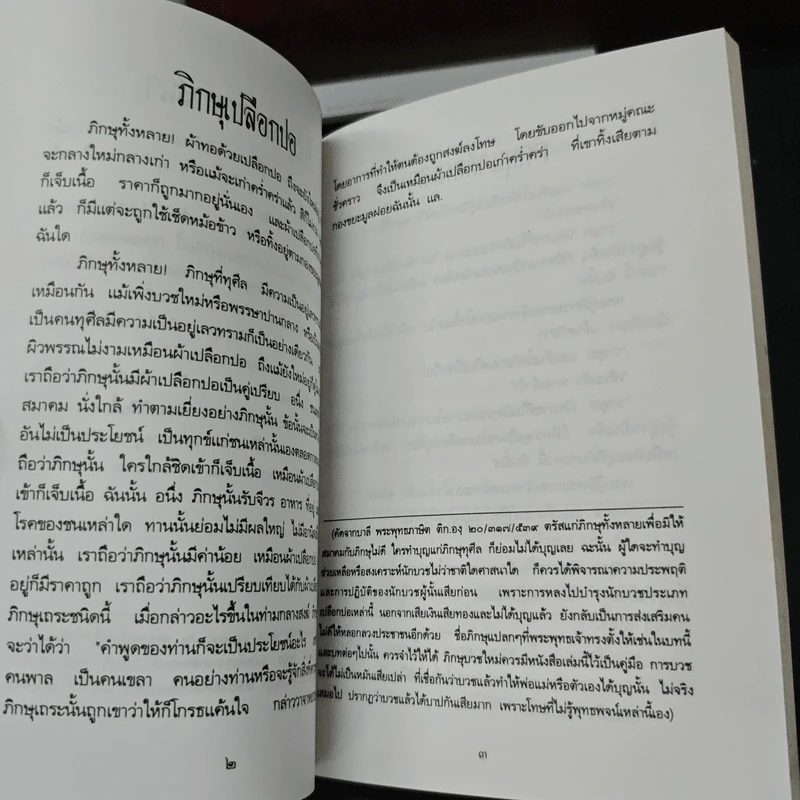 ภิกษุเปลือกปอ
ภิกษุทั้งหลาย! ผ้าทอด้วยเปลือกปอ ถึงจะยังใหม่
จะกลางใหม่กลางเก่า หรือแม้จะเก่าคร่ำคร่าแล้ว สีก็ไม่งาม
ก็เจ็บเนื้อ ราคาก็ถูกมากอยู่นั่นเอง และผ้าเปลือกปอ
แล้ว ก็มีแต่จะถูกใช้เช็ดหม้อข้าว หรือทิ้งอยู่ตามกองขยะ
ฉันใด
ภิกษุทั้งหลาย! ภิกษุที่ทุศีล มีความเป็นอยู่เลวทราม
เหมือนกัน แม้เพิ่งบวชใหม่หรือพรรษาปานกลาง หรือเป็น
เป็นคนทุศีลมีความเป็นอยู่เลวทรามก็เป็นอย่างเดียวกัน
ผิวพรรณไม่งามเหมือนผ้าเปลือกปอ ถึงแม้ยังใหม่อยู่ก็
เราถือว่าภิกษุนั้นมีผ้าเปลือกปอเป็นคู่เปรียบ อนึ่ง ชน
สมาคม นั่งใกล้ ทำตามเยี่ยงอย่างภิกษุนั้น ข้อนั้นจะเป็น
อันไม่เป็นประโยชน์ เป็นทุกข์แก่ชนเหล่านั้นเองตลอดกาล
ถือว่าภิกษุนั้น ใครใกล้ชิดเข้าก็เจ็บเนื้อ เหมือนผ้าเปลือกปอ
เข้าก็เจ็บเนื้อ ฉันนั้น อนึ่ง ภิกษุนั้นรับจีวร อาหาร ที่อยู่
โรคของชนเหล่าใด ทานนั้นย่อมไม่มีผลใหญ่ ไม่มีอานิสงส์
เหล่านั้น เราถือว่าภิกษุนั้นมีค่าน้อย เหมือนผ้าเปลือกปอ
อยู่ก็มีราคาถูก เราถือว่าภิกษุนั้นเปรียบเทียบได้กับผ้าเปลือกปอ
ภิกษุเถระชนิดนี้ เมื่อกล่าวอะไรขึ้นในท่ามกลางสงฆ์
จะว่าได้ว่า "คำพูดของท่านก็จะเป็นประโยชน์อะไร
คนพาล เป็นคนเขลา คนอย่างท่านหรือจะรู้จักสิ่งที่ควร
ภิกษุเถระนั้นถูกเขาว่าให้ก็โกรธแค้นใจ กล่าววาจา
๒
โดยอาการที่ทำให้ตนต้องถูกสงฆ์ลงโทษ โดยขับออกไปจากหมู่คณะ
ชั่วคราว จึงเป็นเหมือนผ้าเปลือกปอเก่าคร่ำคร่า ที่เขาทิ้งเสียตาม
กองขยะมูลฝอยฉันนั้น แล.
(คัดจากบาลี พระพุทธภาษิต ติก.อํ. ๒๐/๓๑๗/๕๓๙ ตรัสแก่ภิกษุทั้งหลายเพื่อมิให้
สมาคมกับภิกษุไม่ดี ใครทำบุญแก่ภิกษุทุศีล ก็ย่อมไม่ได้บุญเลย ฉะนั้น ผู้ใดจะทำบุญ
ช่วยเหลือหรือสงเคราะห์นักบวชไม่ว่าชาติใดศาสนาใด ก็ควรได้พิจารณาความประพฤติ
และการปฏิบัติของนักบวชผู้นั้นเสียก่อน เพราะการหลงไปบำรุงนักบวชประเภท
เปลือกปอเหล่านี้ นอกจากเสียเงินเสียทองและไม่ได้บุญแล้ว ยังกลับเป็นการส่งเสริมคน
ไม่ดีให้หลอกลวงประชาชนอีกด้วย ชื่อภิกษุแปลกๆที่พระพุทธเจ้าทรงตั้งให้เช่นในบทนี้
และบทต่อๆไปนั้น ควรจำไว้ให้ได้ ภิกษุบวชใหม่ควรมีหนังสือเล่มนี้ไว้เป็นคู่มือ การบวช
จะได้ไม่เป็นหมันเสียเปล่า ที่เชื่อกันว่าบวชแล้วทำให้พ่อแม่หรือตัวเองได้บุญนั้น ไม่จริง
เสมอไป ปรากฏว่าบวชแล้วได้บาปกันเสียมาก เพราะโทษที่ไม่รู้พุทธพจน์เหล่านี้เอง)
๓